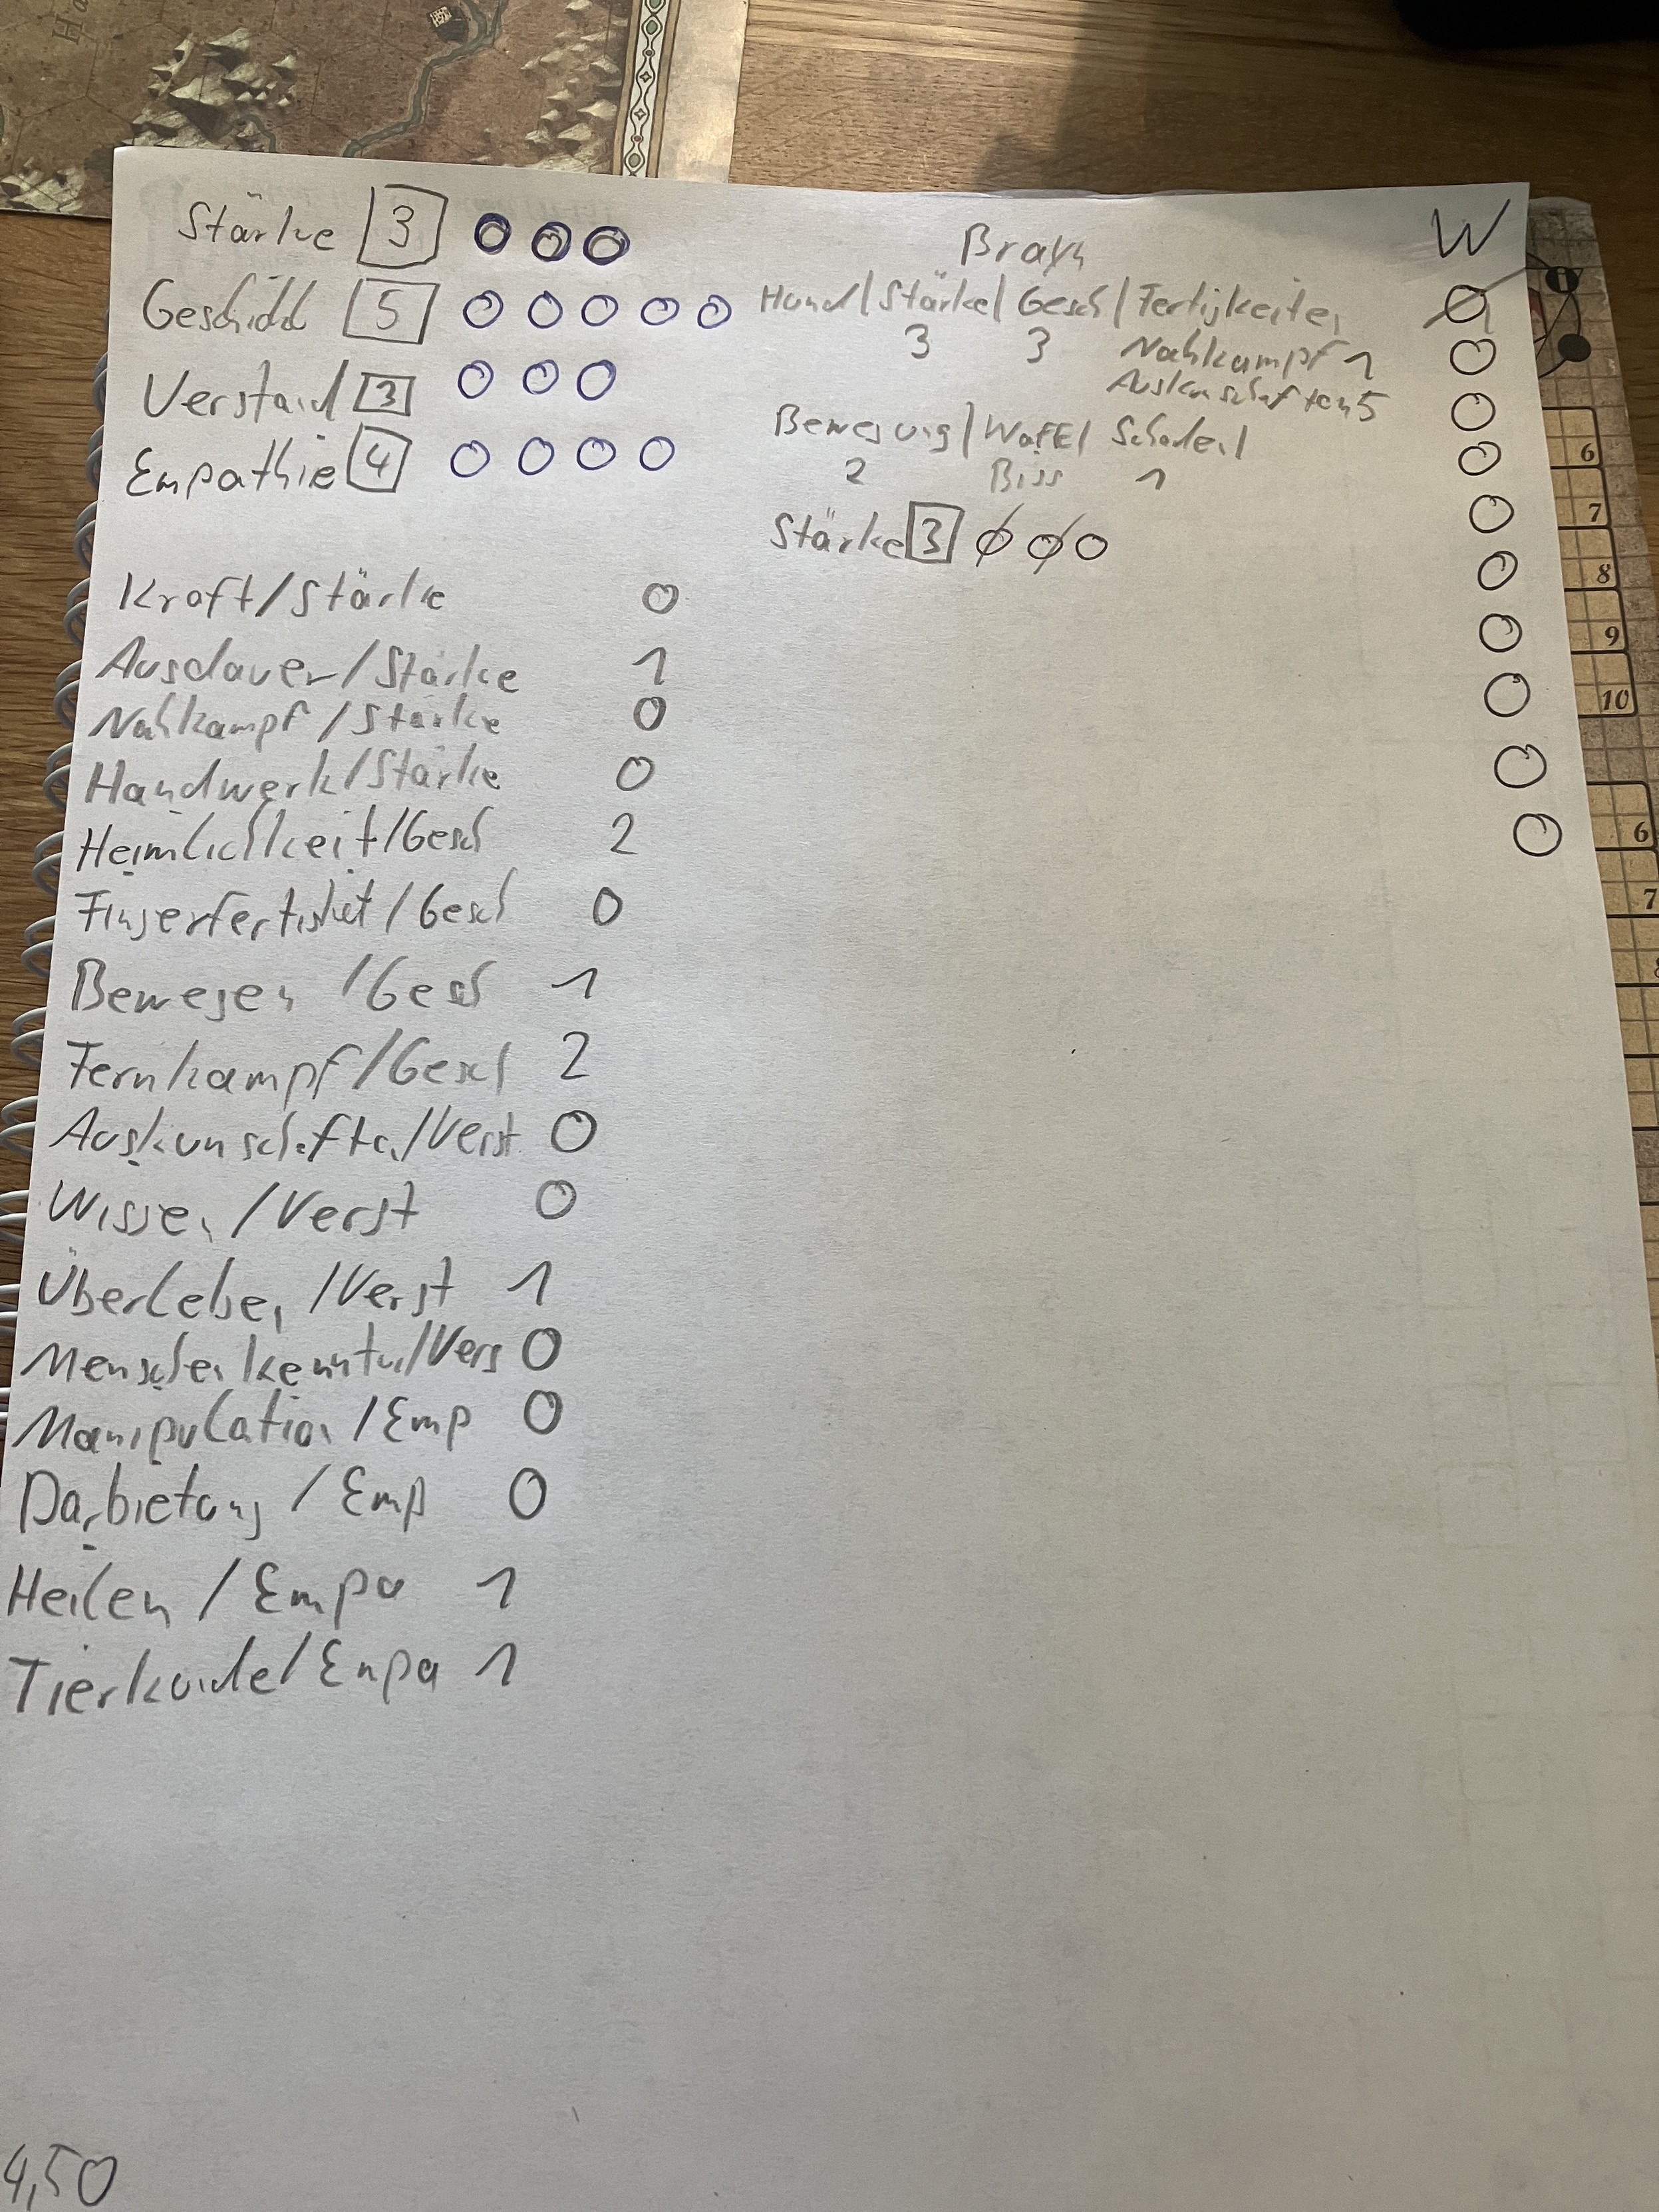 Stärke 3
Geschickl 5
Verstand 3
Empathie 4
Kraft/Stärke 0
Ausdauer/Stärke 1
Nahkampf/Stärke 0
Handwerk/Stärke 0
Heimlichkeit/Gesch 2
Fingerfertigkeit/Gesch 0
Bewegen/Gesch 1
Fernkampf/Gesch 2
Auskunschaften/Verst 0
Wissen/Verst 0
Überleben/Verst 1
Menschenkenntnis/Vers 0
Manipulation/Emp 0
Darbietung/Emp 0
Heilen/Empa 1
Tierkunde/Empa 1
4,50
Hund|Stärke|Gesch|Fertigkeiten
3 3 Nahkampf 1
Auskunschaften 5
Bewegung|Waffe|Schaden|
2 Biss 1
Stärke 3
W
1
6
7
8
9
10
6
7